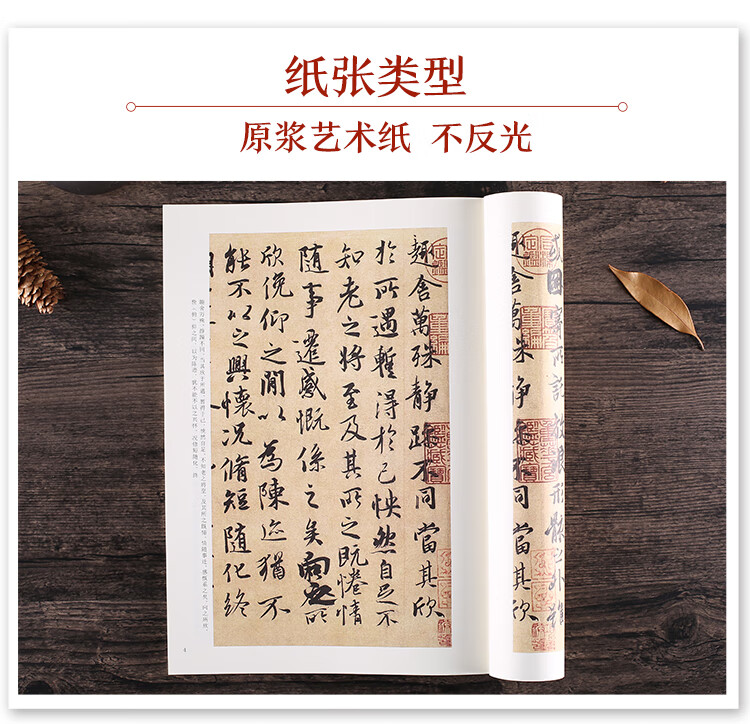 纸张类型
原浆艺术纸 不反光
或因寄所託放浪形骸之外雖
趣舍萬殊静躁不同當其欣
趣舍萬殊静躁不同當其欣
於所遇蹔得於己怏然自足不
知老之將至及其所之既惓情
随事遷感慨係之矣向之所
欣俛仰之閒以為陳迹猶不
能不以之興懷況脩短随化終
4